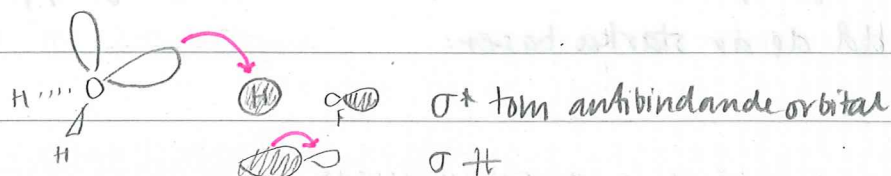 O
H
H
H
F
σ* tom antibindande orbital
σ H